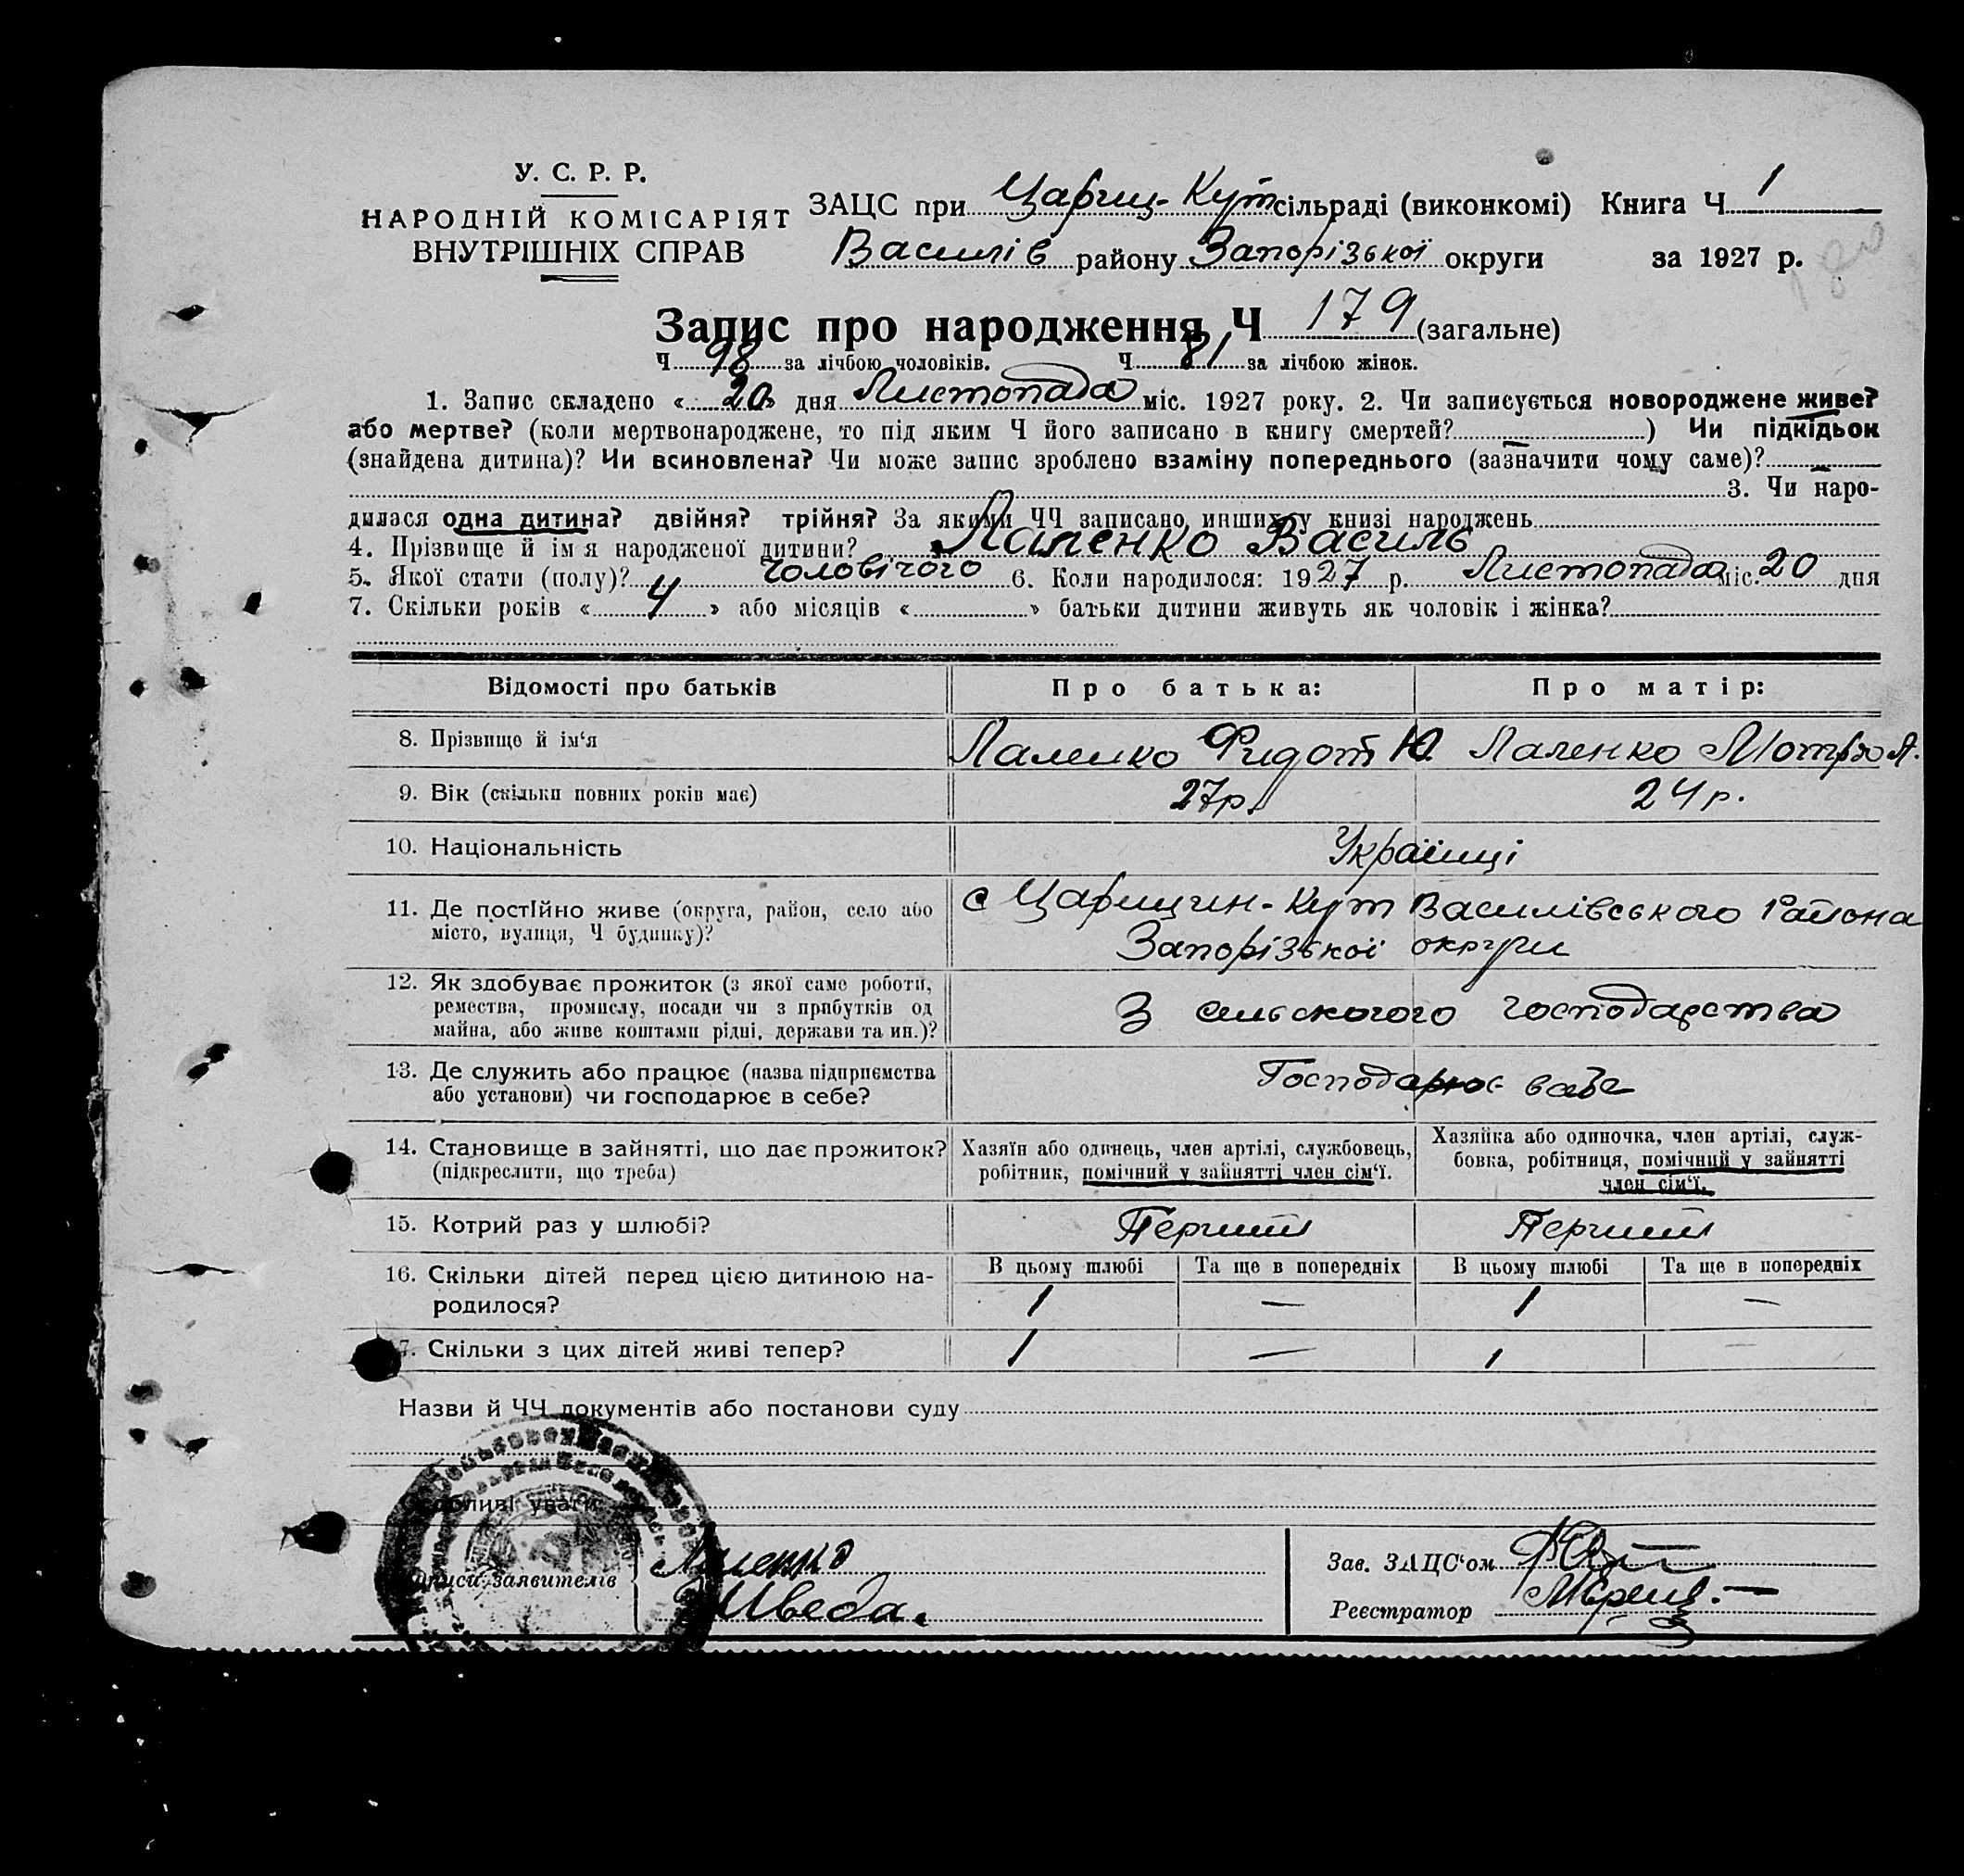 У. С. Р. Р.
НАРОДНІЙ КОМІСАРІЯТ
ВНУТРІШНІХ СПРАВ
ЗАЦС при Цариц-Кут сільраді (виконкомі) Книга Ч 1
Василів району Запорізької округи за 1927 р.
Запис про народження Ч 179 (загальне)
Ч 98 за лічбою чоловіків. Ч 81 за лічбою жінок.
1. Запис складено « 20 » дня Листопада міс. 1927 року. 2. Чи записується новороджене живе?
або мертве? (коли мертвонароджене, то під яким Ч його записано в книгу смертей? — ) Чи підкідьок
(знайдена дитина)? Чи всиновлена? Чи може запис зроблено взаміну попереднього (зазначити чому саме)? —
3. Чи наро-
дилася одна дитина? двійня? трійня? За якими ЧЧ записано инших у книзі народжень
4. Прізвище й ім'я народженої дитини? Лаленко Василь
5. Якої стати (полу)? Ч чоловічого 6. Коли народилося: 1927 р. Листопада міс. 20 дня
7. Скільки років « 4 » або місяців « » батьки дитини живуть як чоловік і жінка?
Відомості про батьків Про батька: Про матір:
8. Прізвище й ім'я Лаленко Фидот Ю Лаленко Мотря Л.
9. Вік (скільки повних років має) 27р. 24р.
10. Національність Українці
11. Де постійно живе (округа, район, село або
місто, вулиця, Ч будинку)?
с Царицин-Кут Василівського Района
Запорізької округи
12. Як здобуває прожиток (з якої саме роботи,
ремества, промислу, посади чи з прибутків од
майна, або живе коштами рідні, держави та ин.)?
З сельского господарства
13. Де служить або працює (назва підприємства
або установи) чи господарює в себе?
Господарює
14. Становище в зайнятті, що дає прожиток?
(підкреслити, що треба)
Хазяїн або одинець, член артілі, службовець,
робітник, помічний у зайнятті член сім'ї.
Хазяйка або одиночка, член артілі, служ-
бовка, робітниця, помічний у зайнятті
член сім'ї.
15. Котрий раз у шлюбі? Перший Перший
16. Скільки дітей перед цією дитиною на-
родилося?
В цьому шлюбі Та ще в попередніх В цьому шлюбі Та ще в попередніх
1 — 1 —
17. Скільки з цих дітей живі тепер? 1 — 1 —
Назви й ЧЧ документів або постанови суду
Особливі уваги:
Підписи заявителів
Лаленко
Шведа.
Зав. ЗАЦС'ом
Реєстратор